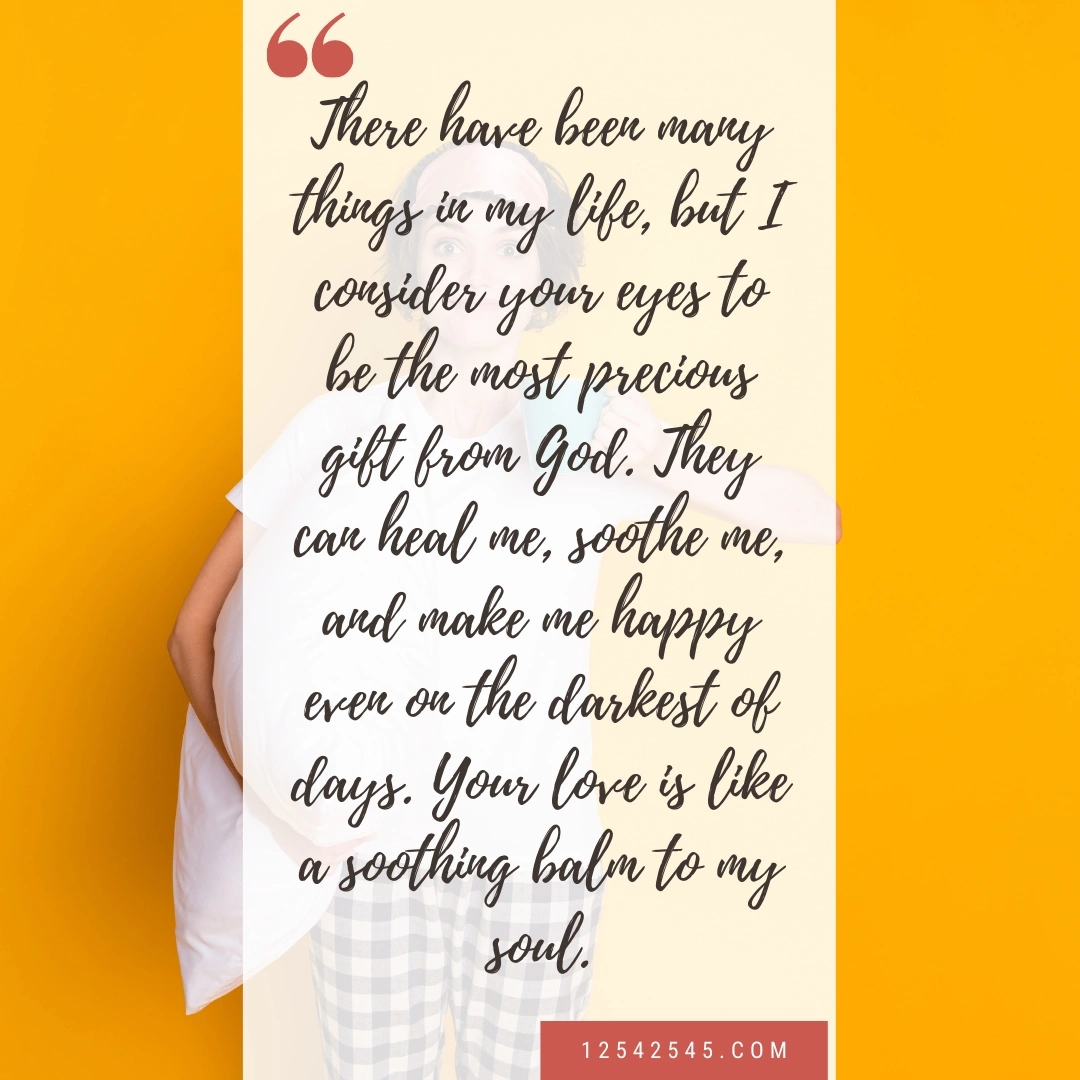 “
There have been many
things in my life, but I
consider your eyes to
be the most precious
gift from God. They
can heal me, soothe me,
and make me happy
even on the darkest of
days. Your love is like
a soothing balm to my
soul.
12542545.COM